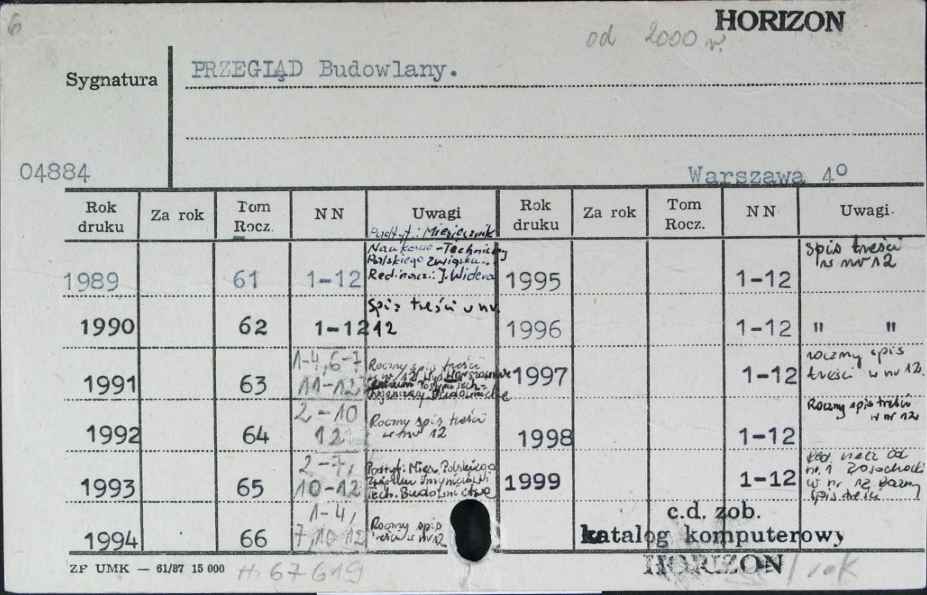 6
HORIZON
od 2000 r.
Sygnatura
PRZEGLĄD Budowlany.
04884
Warszawa 4°
Rok druku Za rok Tom Rocz. NN Uwagi Rok druku Za rok Tom Rocz. NN Uwagi
Podtyt: Miesięcznik
Naukowo-Techniczny
Polskiego Związku
1989 61 1-12 Red. nacz.: J. Widera 1995 1-12 Spis treści w nr 12
1990 62 1-12 Spis treści w nr 12 1996 1-12 " "
1991 63 1-4, 6-7 11-12 Roczny spis treści w nr 12 1997 1-12 roczny spis treści w nr 12.
1992 64 2-10 12 Roczny spis treści w nr 12 1998 1-12 Roczny spis treści w nr 12
1993 65 2-7, 10-12 Podtyt: Mies. Polskiego Związku Inżynierów i Tech. Budownictwa 1999 1-12 Red. nacz. od nr. 1 w nr 12 roczny spis treści
1994 66 1-4, 7, 10-12 Roczny spis treści w nr 12
c.d. zob.
katalog komputerowy
HORIZON
ZP UMK — 61/87 15 000
H. 67619
1 rok